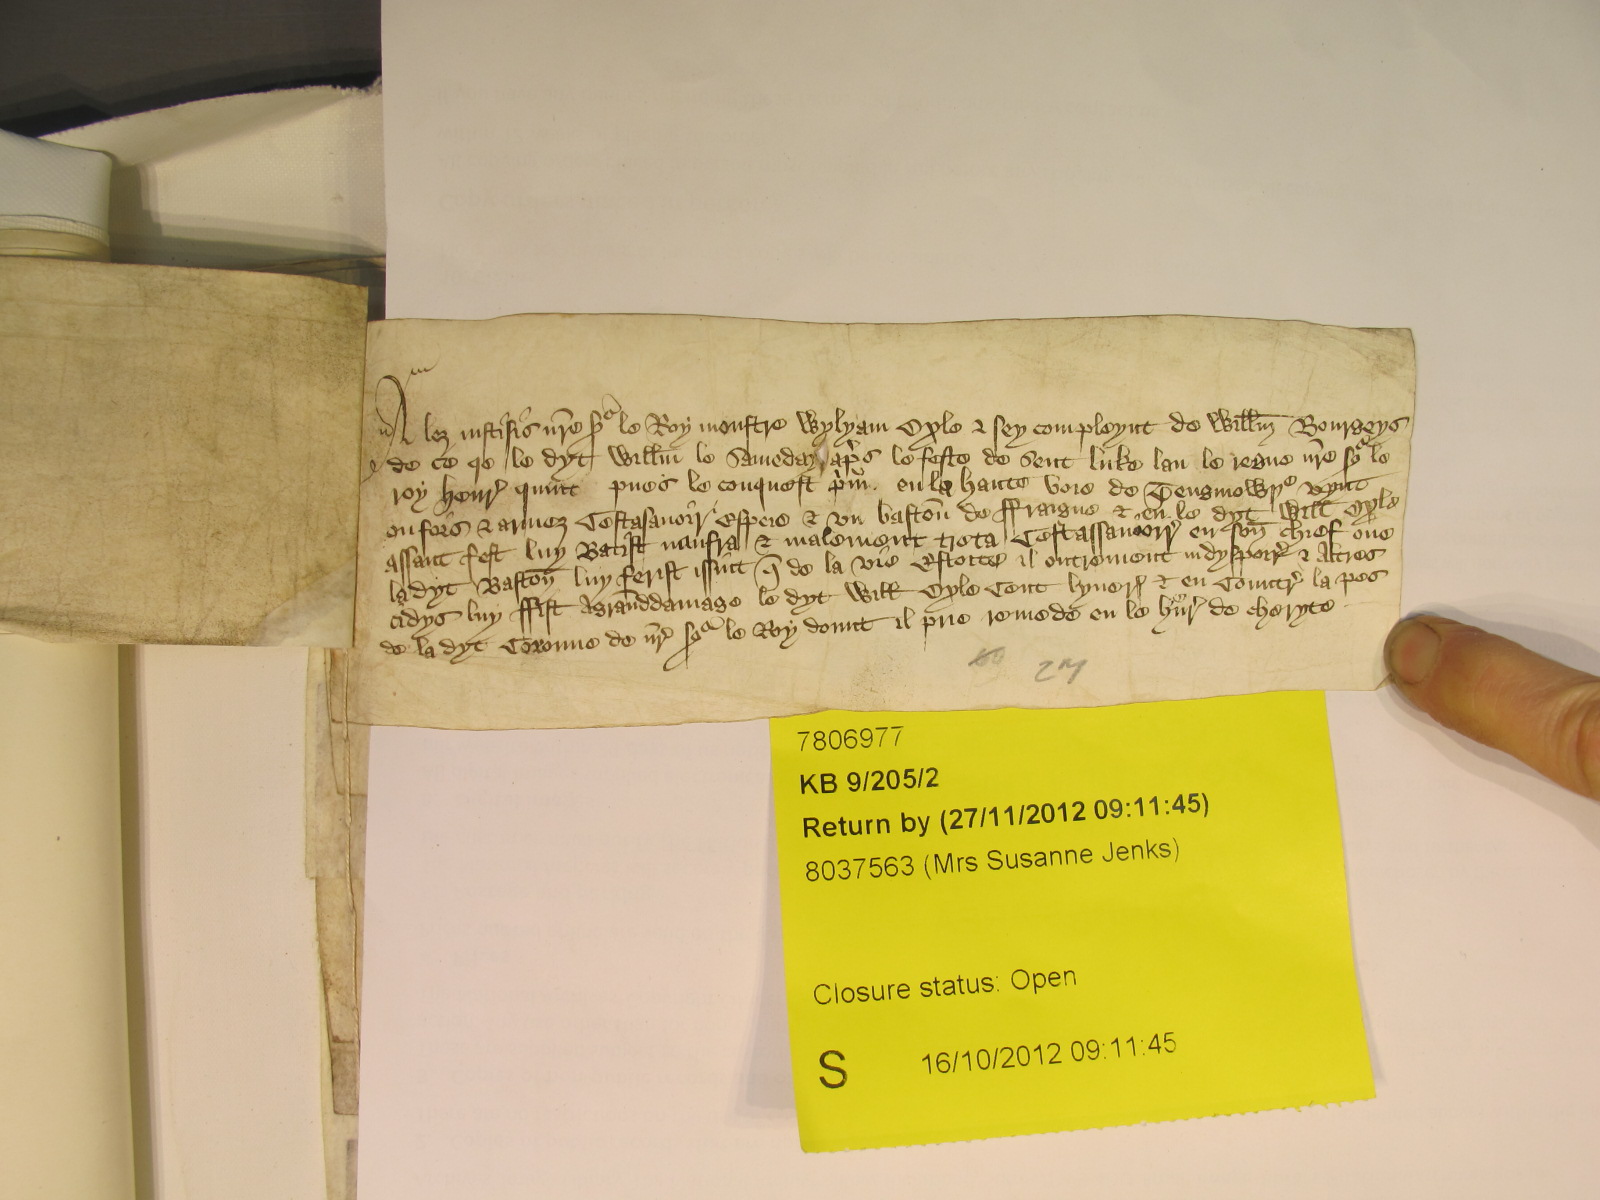 A lez justisis nr̄e sr̄ le Roy monstre Wylyam Oyle & sey compleynt de Willm̄ Bourgeys
de ce qe le dyt Willm̄ le Sameday ap̄s le feste de Sent Luke lan le regne nr̄e sr̄ le
roy Henr̄ quint pues le conquest p̄m̄. en le haute voie de vynt
& armez Espeie & vn baston̄ de ffraigne & en le dyt Will Oyle
assaut fest luy Batist naufra & malement treta en son̄ chief oue
la dyt Baston̄ luy ferist issint q̄ de la vie il & Altres
luy ffist A grand damage le dyt Will Oyle Cent & en la pes
de la dyt Coronne de nr̄ sr̄ le Roy dount il prie remede en le de cheryte
27
7806977
KB 9/205/2
Return by (27/11/2012 09:11:45)
8037563 (Mrs Susanne Jenks)
Closure status: Open
S 16/10/2012 09:11:45